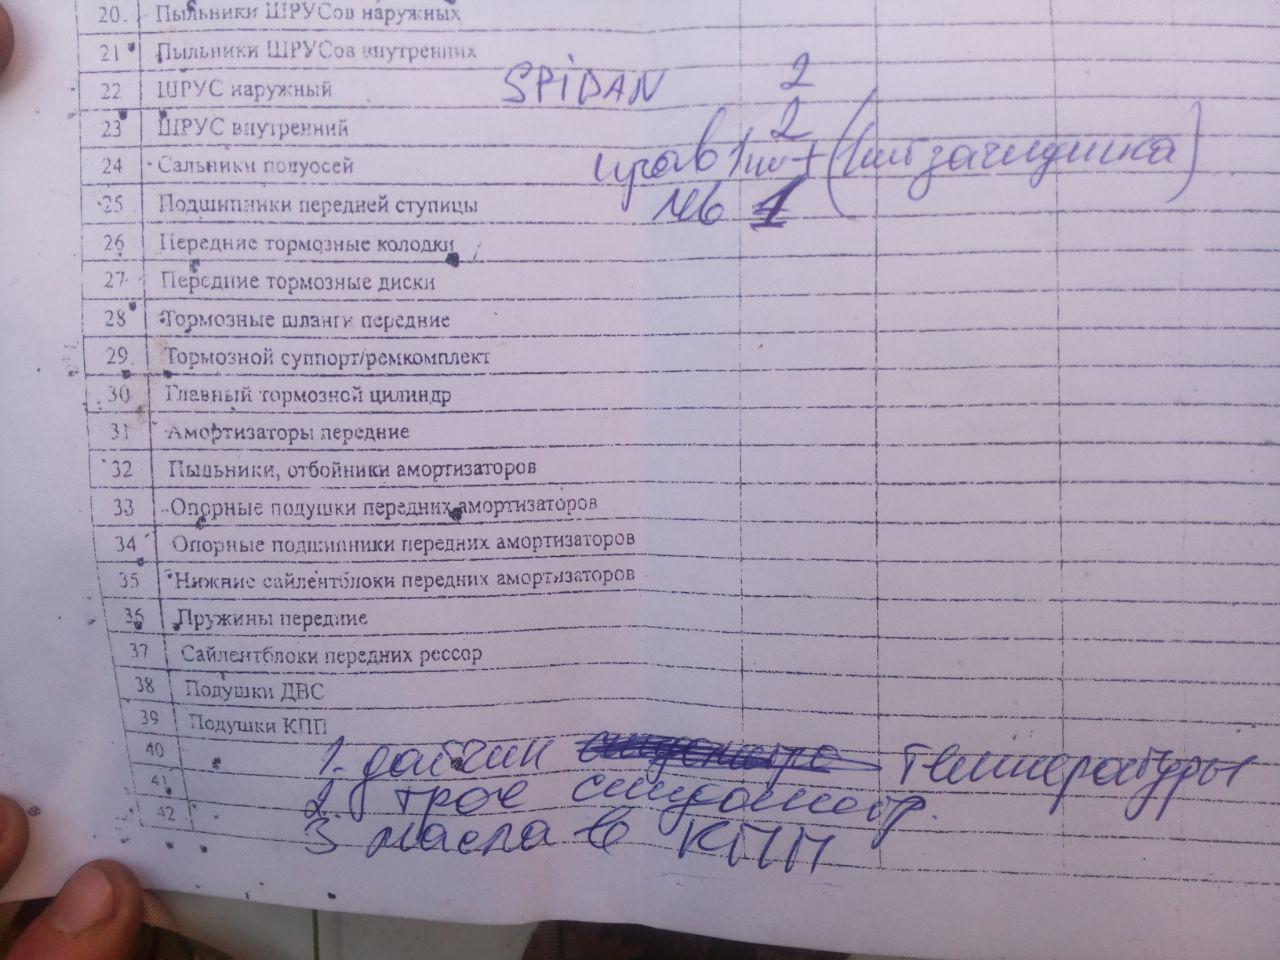 20. Пыльники ШРУСов наружных
21 Пыльники ШРУСов внутренних
22 ШРУС наружный SPiDAN 2
23 ШРУС внутренний 2
24 Сальники полуосей прав 1шт + (
25 Подшипники передней ступицы лев 1
26 Передние тормозные колодки
27 Передние тормозные диски
28 Тормозные шланги передние
29. Тормозной суппорт/ремкомплект
30 Главный тормозной цилиндр
31 Амортизаторы передние
32 Пыльники, отбойники амортизаторов
33 Опорные подушки передних амортизаторов
34 Опорные подшипники передних амортизаторов
35 Нижние сайлентблоки передних амортизаторов
36 Пружины передние
37 Сайлентблоки передних рессор
38 Подушки ДВС
39 Подушки КПП
40 1. датчик температуры
41 2 трос спидометр.
42 3 масла в КПП